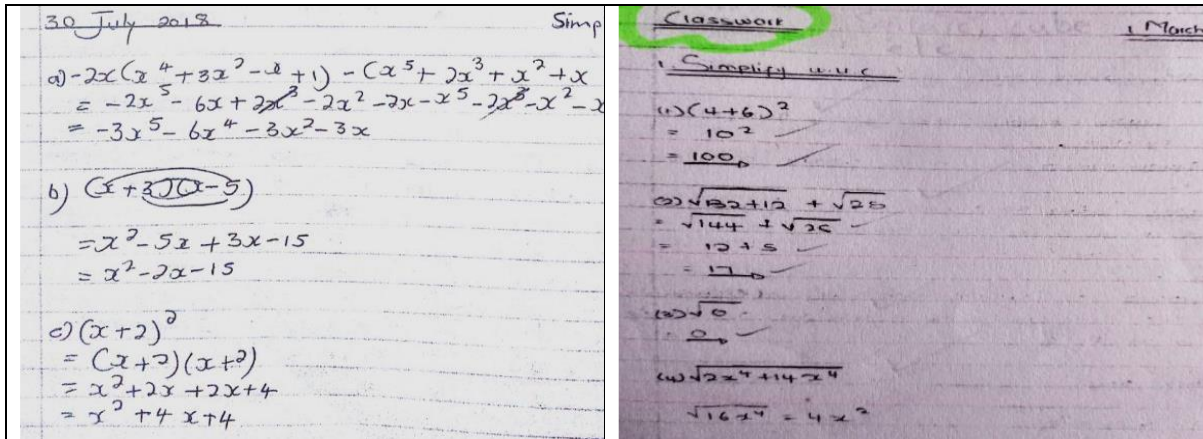 30 July 2018 Simp
a) -2x(x⁴ + 3x² - x + 1) - (x⁵ + 2x³ + x² + x
= -2x⁵ - 6x + 2x³ - 2x² - 2x - x⁵ - 2x³ - x² - x
= -3x⁵ - 6x⁴ - 3x² - 3x
b) (x + 3)(x - 5)
= x² - 5x + 3x - 15
= x² - 2x - 15
c) (x + 2)²
= (x + 2)(x + 2)
= x² + 2x + 2x + 4
= x² + 4x + 4
Classwork 1 March
1. Simplify w.u.c
(1) (4+6)²
= 10²
= 100
(2) √132+12 + √25
= √144 + √25
= 12 + 5
= 17
(3) √0
= 0
(4) √2x⁴ + 14x⁴
√16x⁴ = 4x²